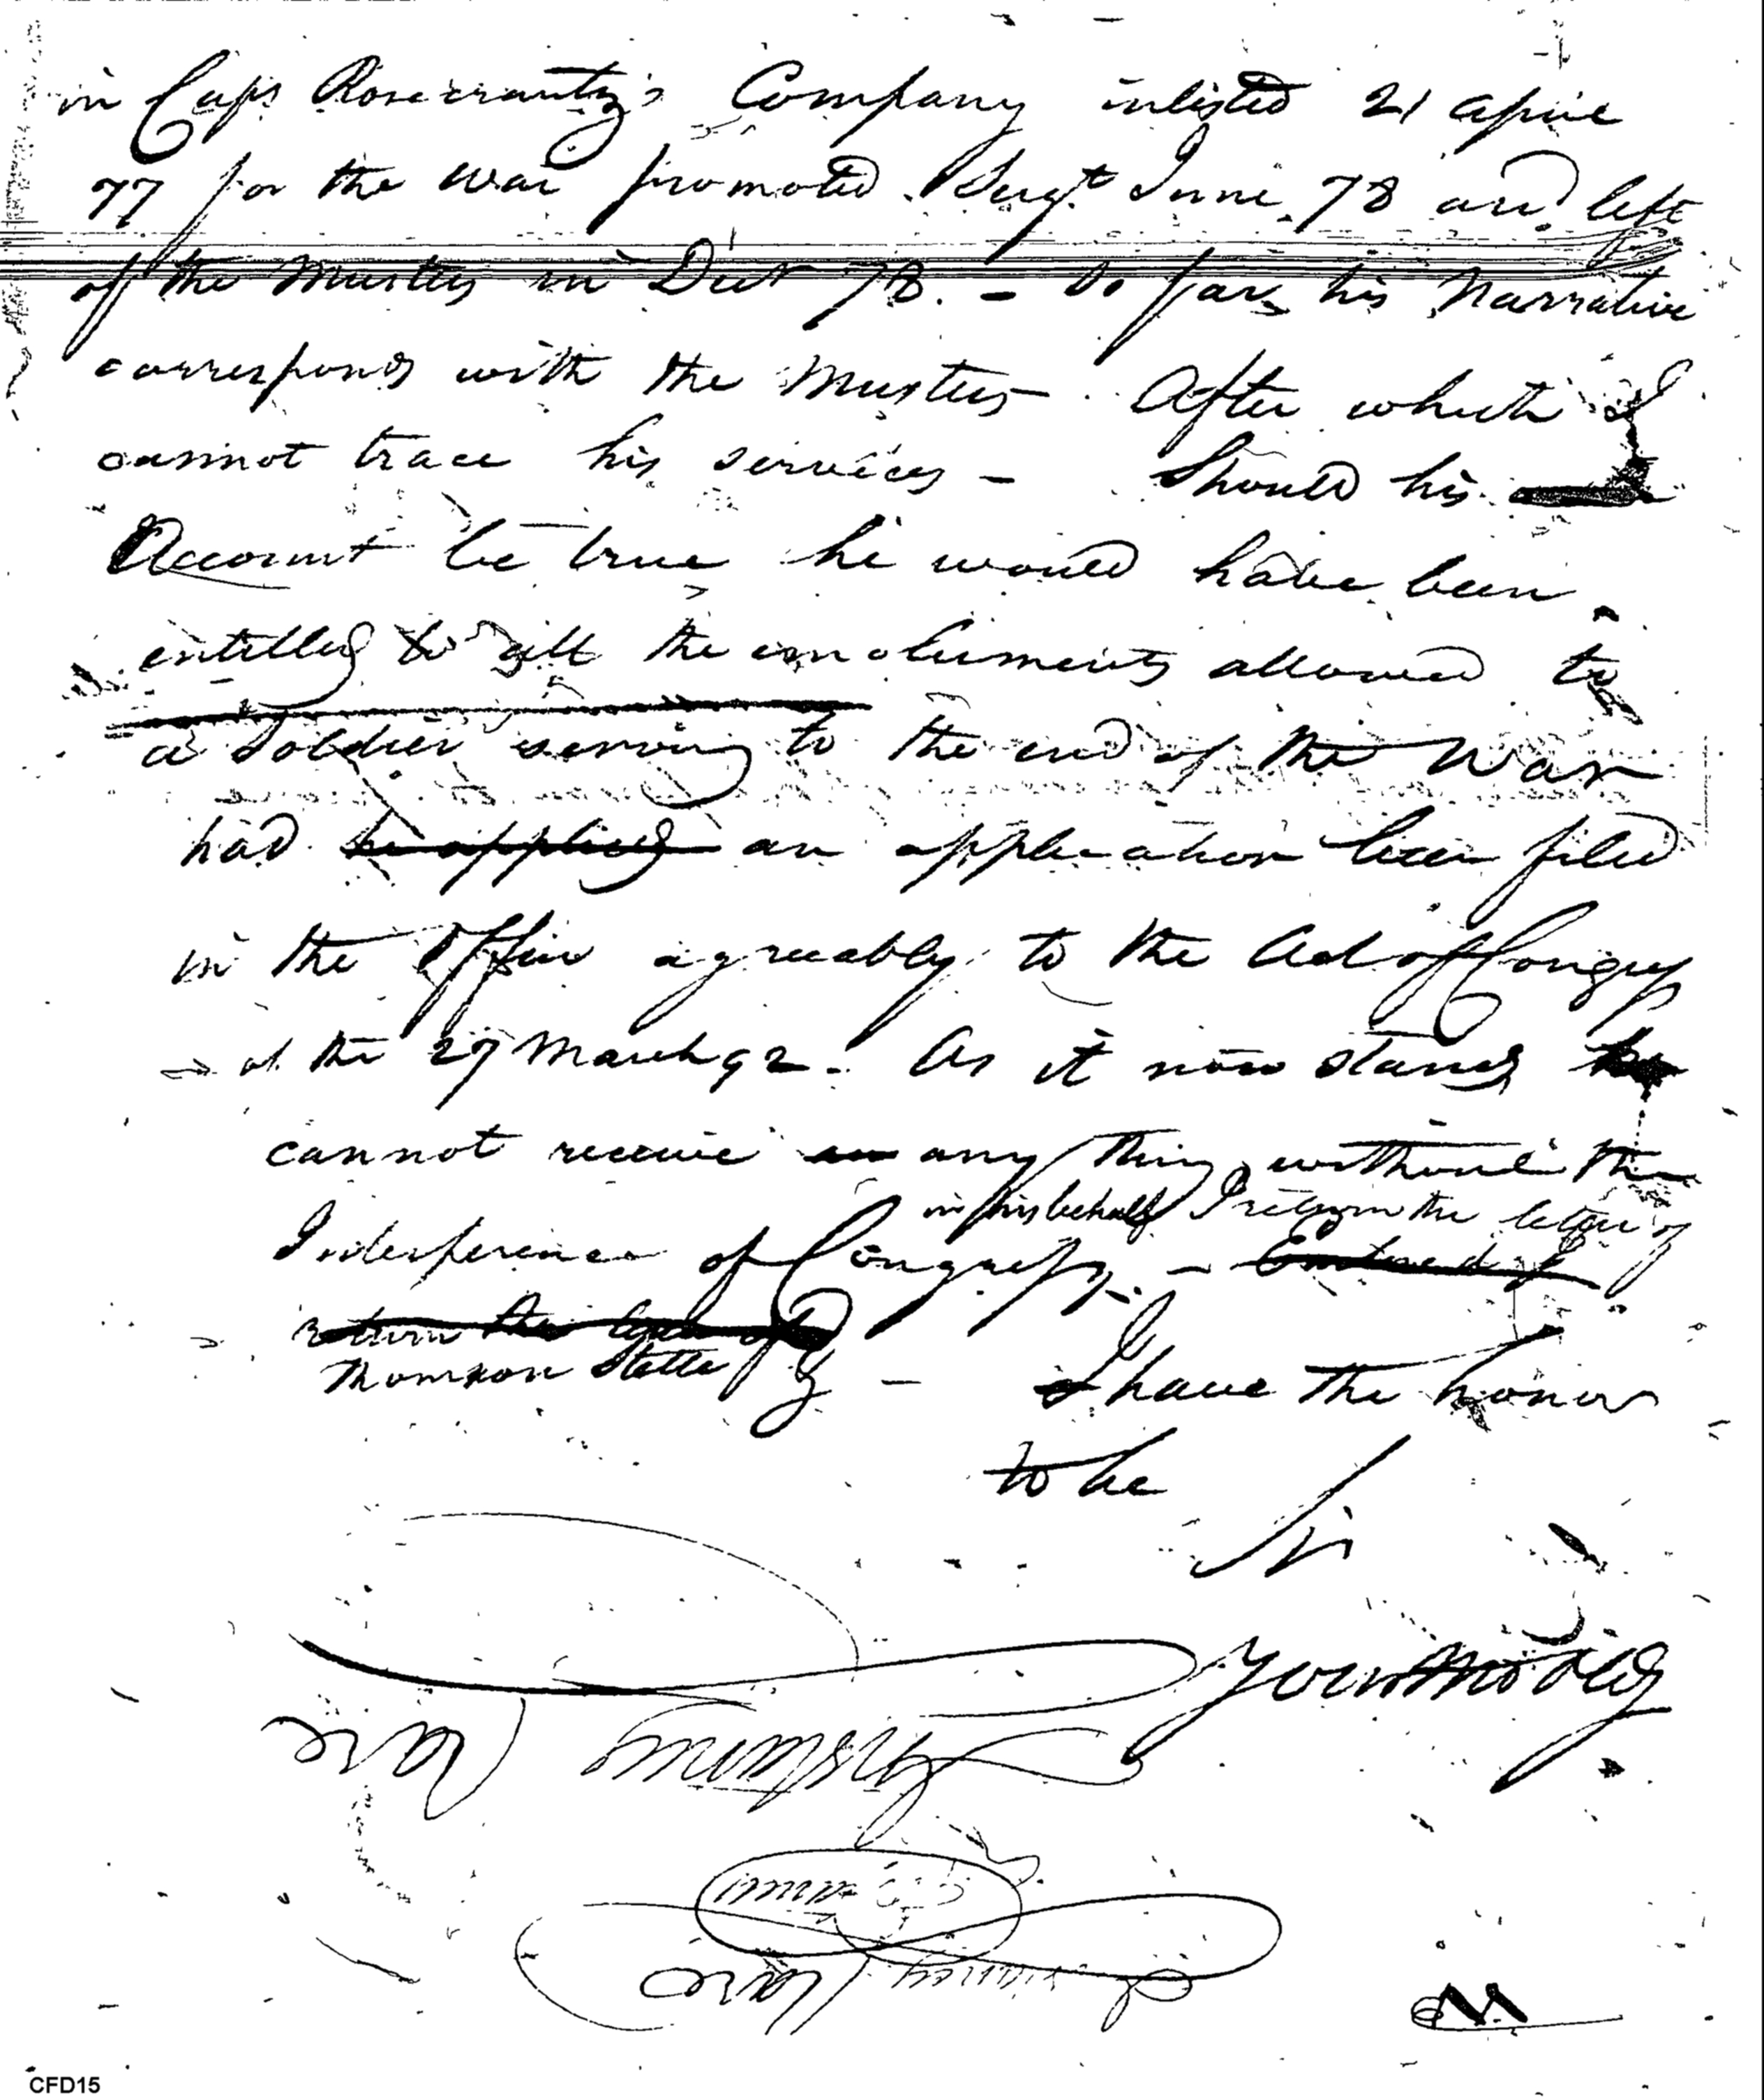 in Capt Rosecrantz's Company inlisted 21 April
77 for the war promoted Sergt June 78 and left
off the Musters in Decr 78. - So far his Narrative
corresponds with the Musters - After which I
cannot trace his services - Should his
Account be true he would have been
entitled to all the emoluments allowed to
a soldier serving to the end of the War
had he applied an application been filed
in the Office agreeably to the Act of Congress
of the 27 March 92. As it now stands he
cannot receive an any thing without the
Interference of Congress in his behalf - Enclosed I I return the letter of
return the letter of
Thomson Stelle -
I have the honor
to be
Sir
Your Mo Obd
CFD15